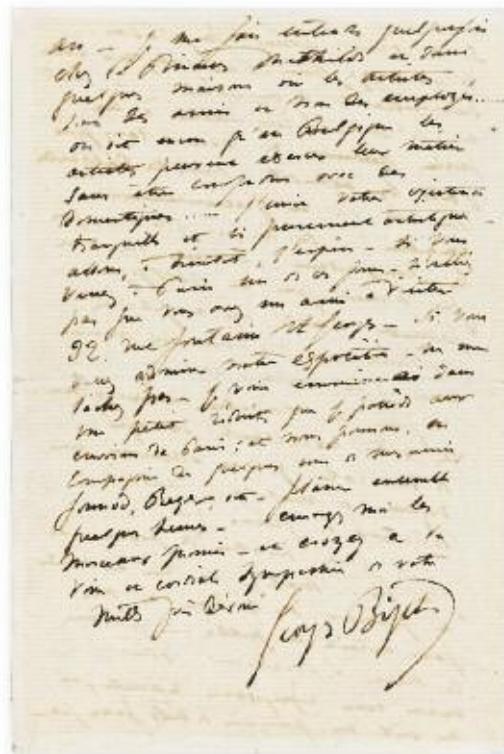 ans - je me fais entendre quelquefois
chez la Princesse Mathilde et dans
quelques maisons où les artistes
sont des amis et non des employés....
on dit encore qu'en Belgique les
artistes peuvent exercer leur métier
sans être confondus avec les
domestiques..... J'envie votre existence
tranquille et si purement artistique -
allons, à bientôt, j'espère - Si vous
venez à Paris un de ces jours - n'oubliez
pas que vous avez un ami à visiter
32. rue fontaine St Georges - Si vous
venez admirer notre exposition - ne me
lâchez pas - Je vous emmènerai dans
un petit réduit que je possède aux
environs de Paris; et nous pourrons, en
compagnie de quelques uns de mes amis
Gounod, Reyer, etc - flâner ensemble
quelques heures - envoyez moi les
morceaux promis - et croyez à la
vive et cordiale sympathie de votre
tout dévoué
Georges Bizet